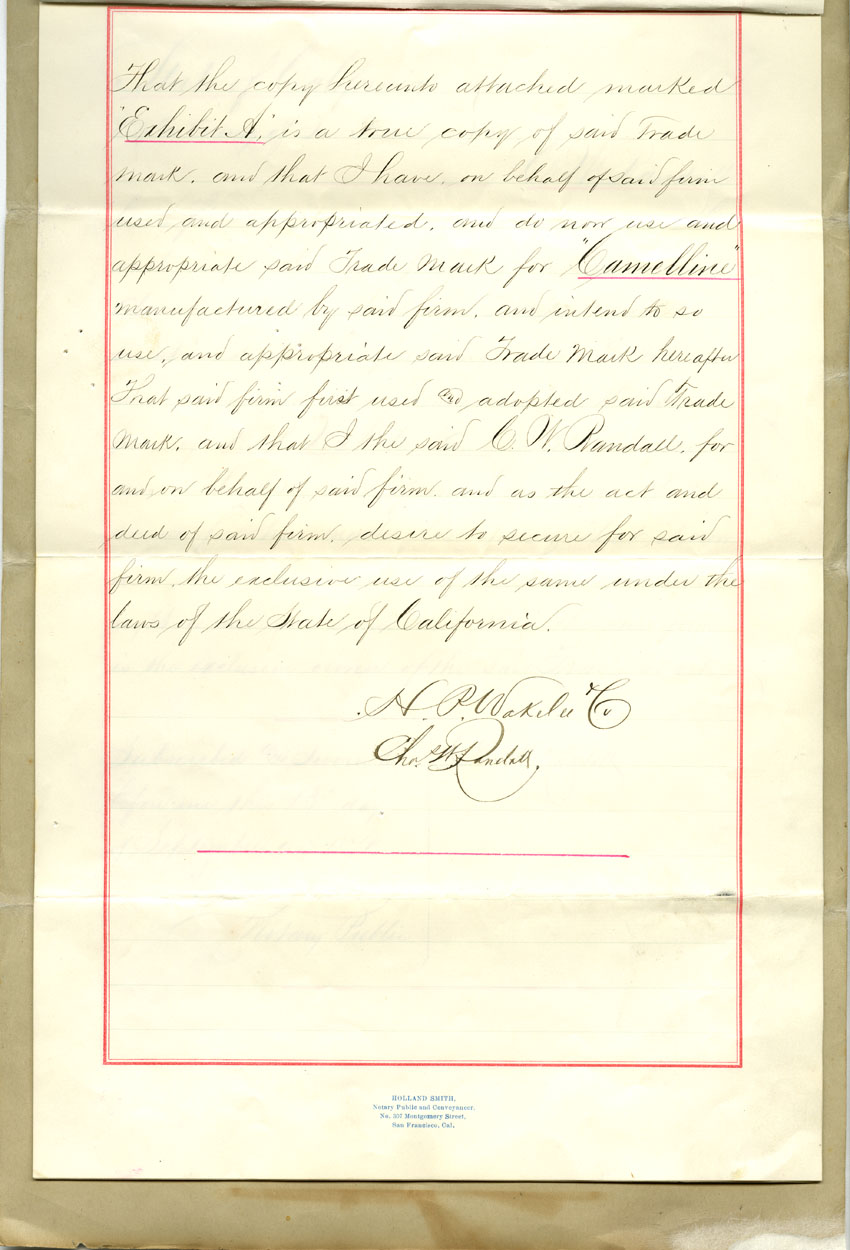 That the copy hereunto attached marked
"Exhibit A," is a true copy of said Trade
mark, and that I have, on behalf of said firm
used and appropriated, and do now use and
appropriate said Trade Mark for "Camelline"
manufactured by said firm, and intend to so
use, and appropriate said Trade Mark hereafter
That said firm first used and adopted said Trade
Mark, and that I the said C. W. Randall, for
and on behalf of said firm, and as the act and
deed of said firm, desire to secure for said
firm, the exclusive use of the same under the
laws of the State of California.
H. P. Wakelee & Co
Chas. W. Randall.
Notary Public
HOLLAND SMITH,
Notary Public and Conveyancer,
No. 307 Montgomery Street,
San Francisco, Cal.